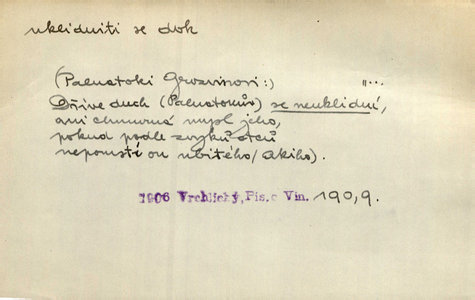 uklidniti se dok
(Palnatoki Grosvinovi:) "...
Dříve duch (Palnatokův) se neuklidní,
ani chmurná mysl jeho,
pokud podle zvyků otců
nepomstí on ubitého (Akiho).
1906 Vrchlický, Pís. o Vin. 190,9.